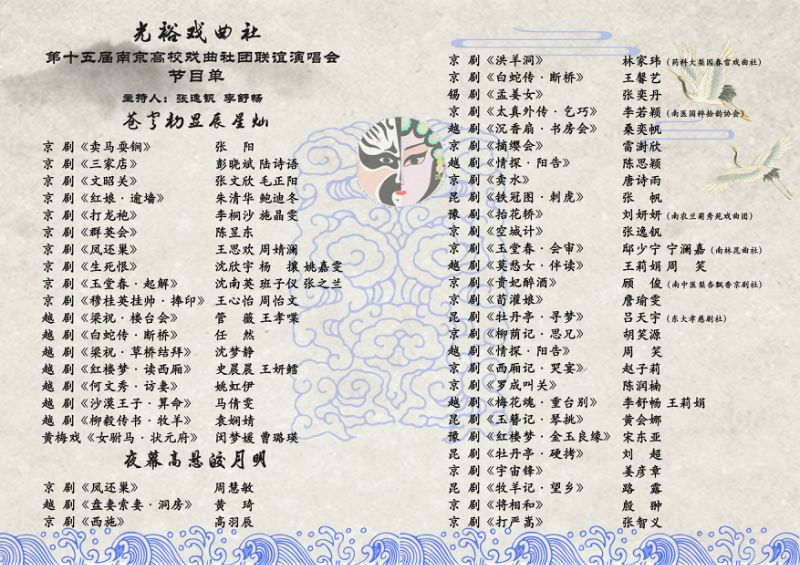 光裕戏曲社
第十五届南京高校戏曲社团联谊演唱会
节目单
主持人：张逸钒 李舒畅
苍穹初显辰星灿
京 剧《卖马耍锏》 张 阳
京 剧《三家店》 彭晓斌 陆诗语
京 剧《文昭关》 张文欣 毛正阳
京 剧《红娘·逾墙》 朱清华 鲍迪冬
京 剧《打龙袍》 李桐沙 施晶雯
京 剧《群英会》 陈昱东
京 剧《凤还巢》 王思欢 周婧澜
京 剧《生死恨》 沈欣宇 杨 攘 姚嘉雯
京 剧《玉堂春·起解》 沈南英 班子仪 张之兰
京 剧《穆桂英挂帅·捧印》 王心怡 周怡文
越 剧《梁祝·楼台会》 管 薇 王孝喋
越 剧《白蛇传·断桥》 任 然
越 剧《梁祝·草桥结拜》 沈梦静
越 剧《红楼梦·读西厢》 史晨晨 王妍鳕
越 剧《何文秀·访妻》 姚虹伊
越 剧《沙漠王子·算命》 马倩雯
越 剧《柳毅传书·牧羊》 袁娴婧
黄梅戏《女驸马·状元府》 闵梦媛 曹璐瑛
夜幕高悬皎月明
京 剧《凤还巢》 周慧敏
越 剧《盘妻索妻·洞房》 黄 琦
京 剧《西施》 高羽辰
京 剧《洪羊洞》 林家玮（药科大梨园春官戏曲社）
京 剧《白蛇传·断桥》 王馨艺
锡 剧《孟姜女》 张奕丹
京 剧《太真外传·乞巧》 李若颖（南医国粹拾韵协会）
越 剧《沉香扇·书房会》 桑奕帆
京 剧《摘缨会》 雷澍欣
越 剧《情探·阳告》 陈思颖
京 剧《卖水》 唐诗雨
昆 剧《铁冠图·刺虎》 张 帆
豫 剧《抬花桥》 刘妍妍（南农兰菊秀苑戏曲团）
京 剧《空城计》 张逸钒
京 剧《玉堂春·会审》 邸少宁 宁澜嘉（南林昆曲社）
越 剧《莫愁女·伴读》 王莉娟 周 笑
京 剧《贵妃醉酒》 顾 俊（南中医梨杏飘香京剧社）
京 剧《荀灌娘》 唐瑜雯
昆 剧《牡丹亭·寻梦》 吕天宇（东大孝慈剧社）
京 剧《柳荫记·思兄》 胡笑源
越 剧《情探·阳告》 周 笑
京 剧《西厢记·哭宴》 赵子莉
京 剧《罗成叫关》 陈润楠
越 剧《梅花魂·重台别》 李舒畅 王莉娟
昆 剧《玉簪记·琴挑》 黄会娜
豫 剧《红楼梦·金玉良缘》 宋东亚
昆 剧《牡丹亭·硬拷》 刘 超
京 剧《宇宙锋》 姜彦章
昆 剧《牧羊记·望乡》 路 露
京 剧《将相和》 殷 翀
京 剧《打严嵩》 张智义